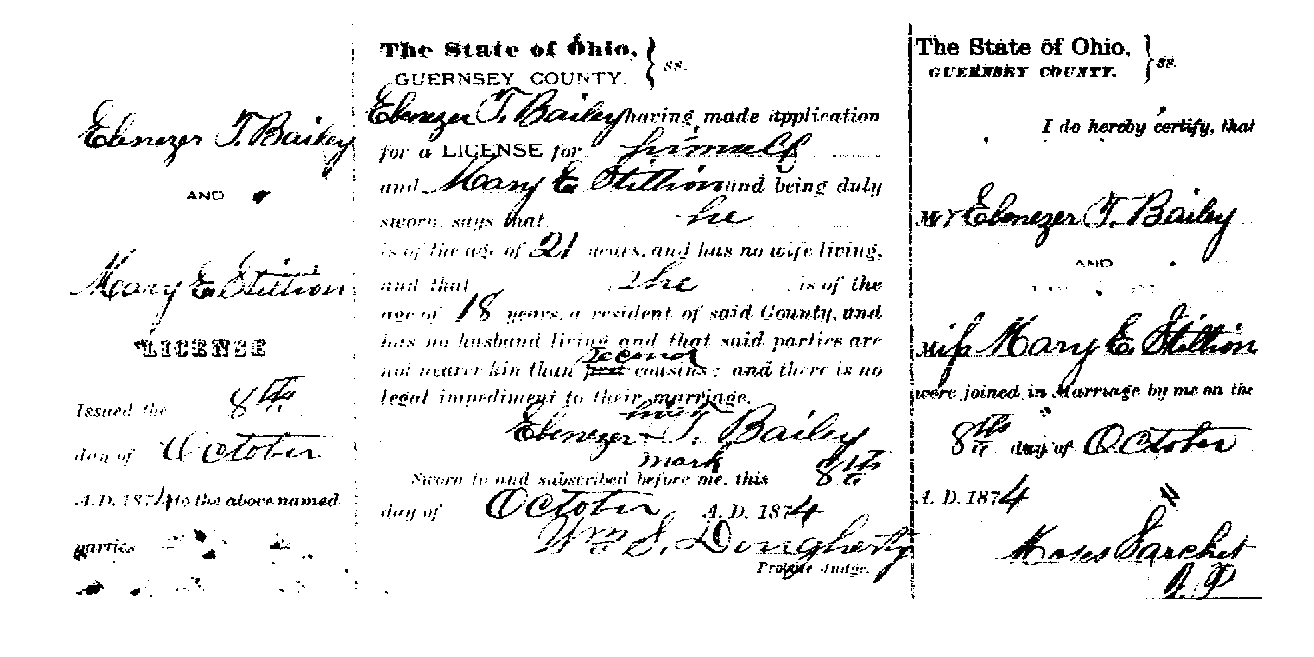 Ebenezer T. Bailey
AND
Mary E. Stittion
LICENSE
Issued the 8th
day of October
A. D. 1874 to the above named
parties
The State of Ohio,
GUERNSEY COUNTY. } ss.
Ebenezer T. Bailey having made application
for a LICENSE for himself
and Mary E. Stittion and being duly
sworn, says that he
is of the age of 21 years, and has no wife living,
and that She is of the
age of 18 years, a resident of said County, and
has no husband living and that said parties are
Second
not nearer kin than first cousins; and there is no
legal impediment to their marriage.
his
Ebenezer + T. Bailey
mark
Sworn to and subscribed before me, this 8th
day of October A. D. 1874
Wm S. Dougherty
Probate Judge.
The State of Ohio,
GUERNSEY COUNTY. } ss.
I do hereby certify, that
Mr Ebenezer T. Bailey
AND
Miss Mary E. Stittion
were joined in Marriage by me on the
8th day of October
A. D. 1874
Moses Sarchet
J. P.